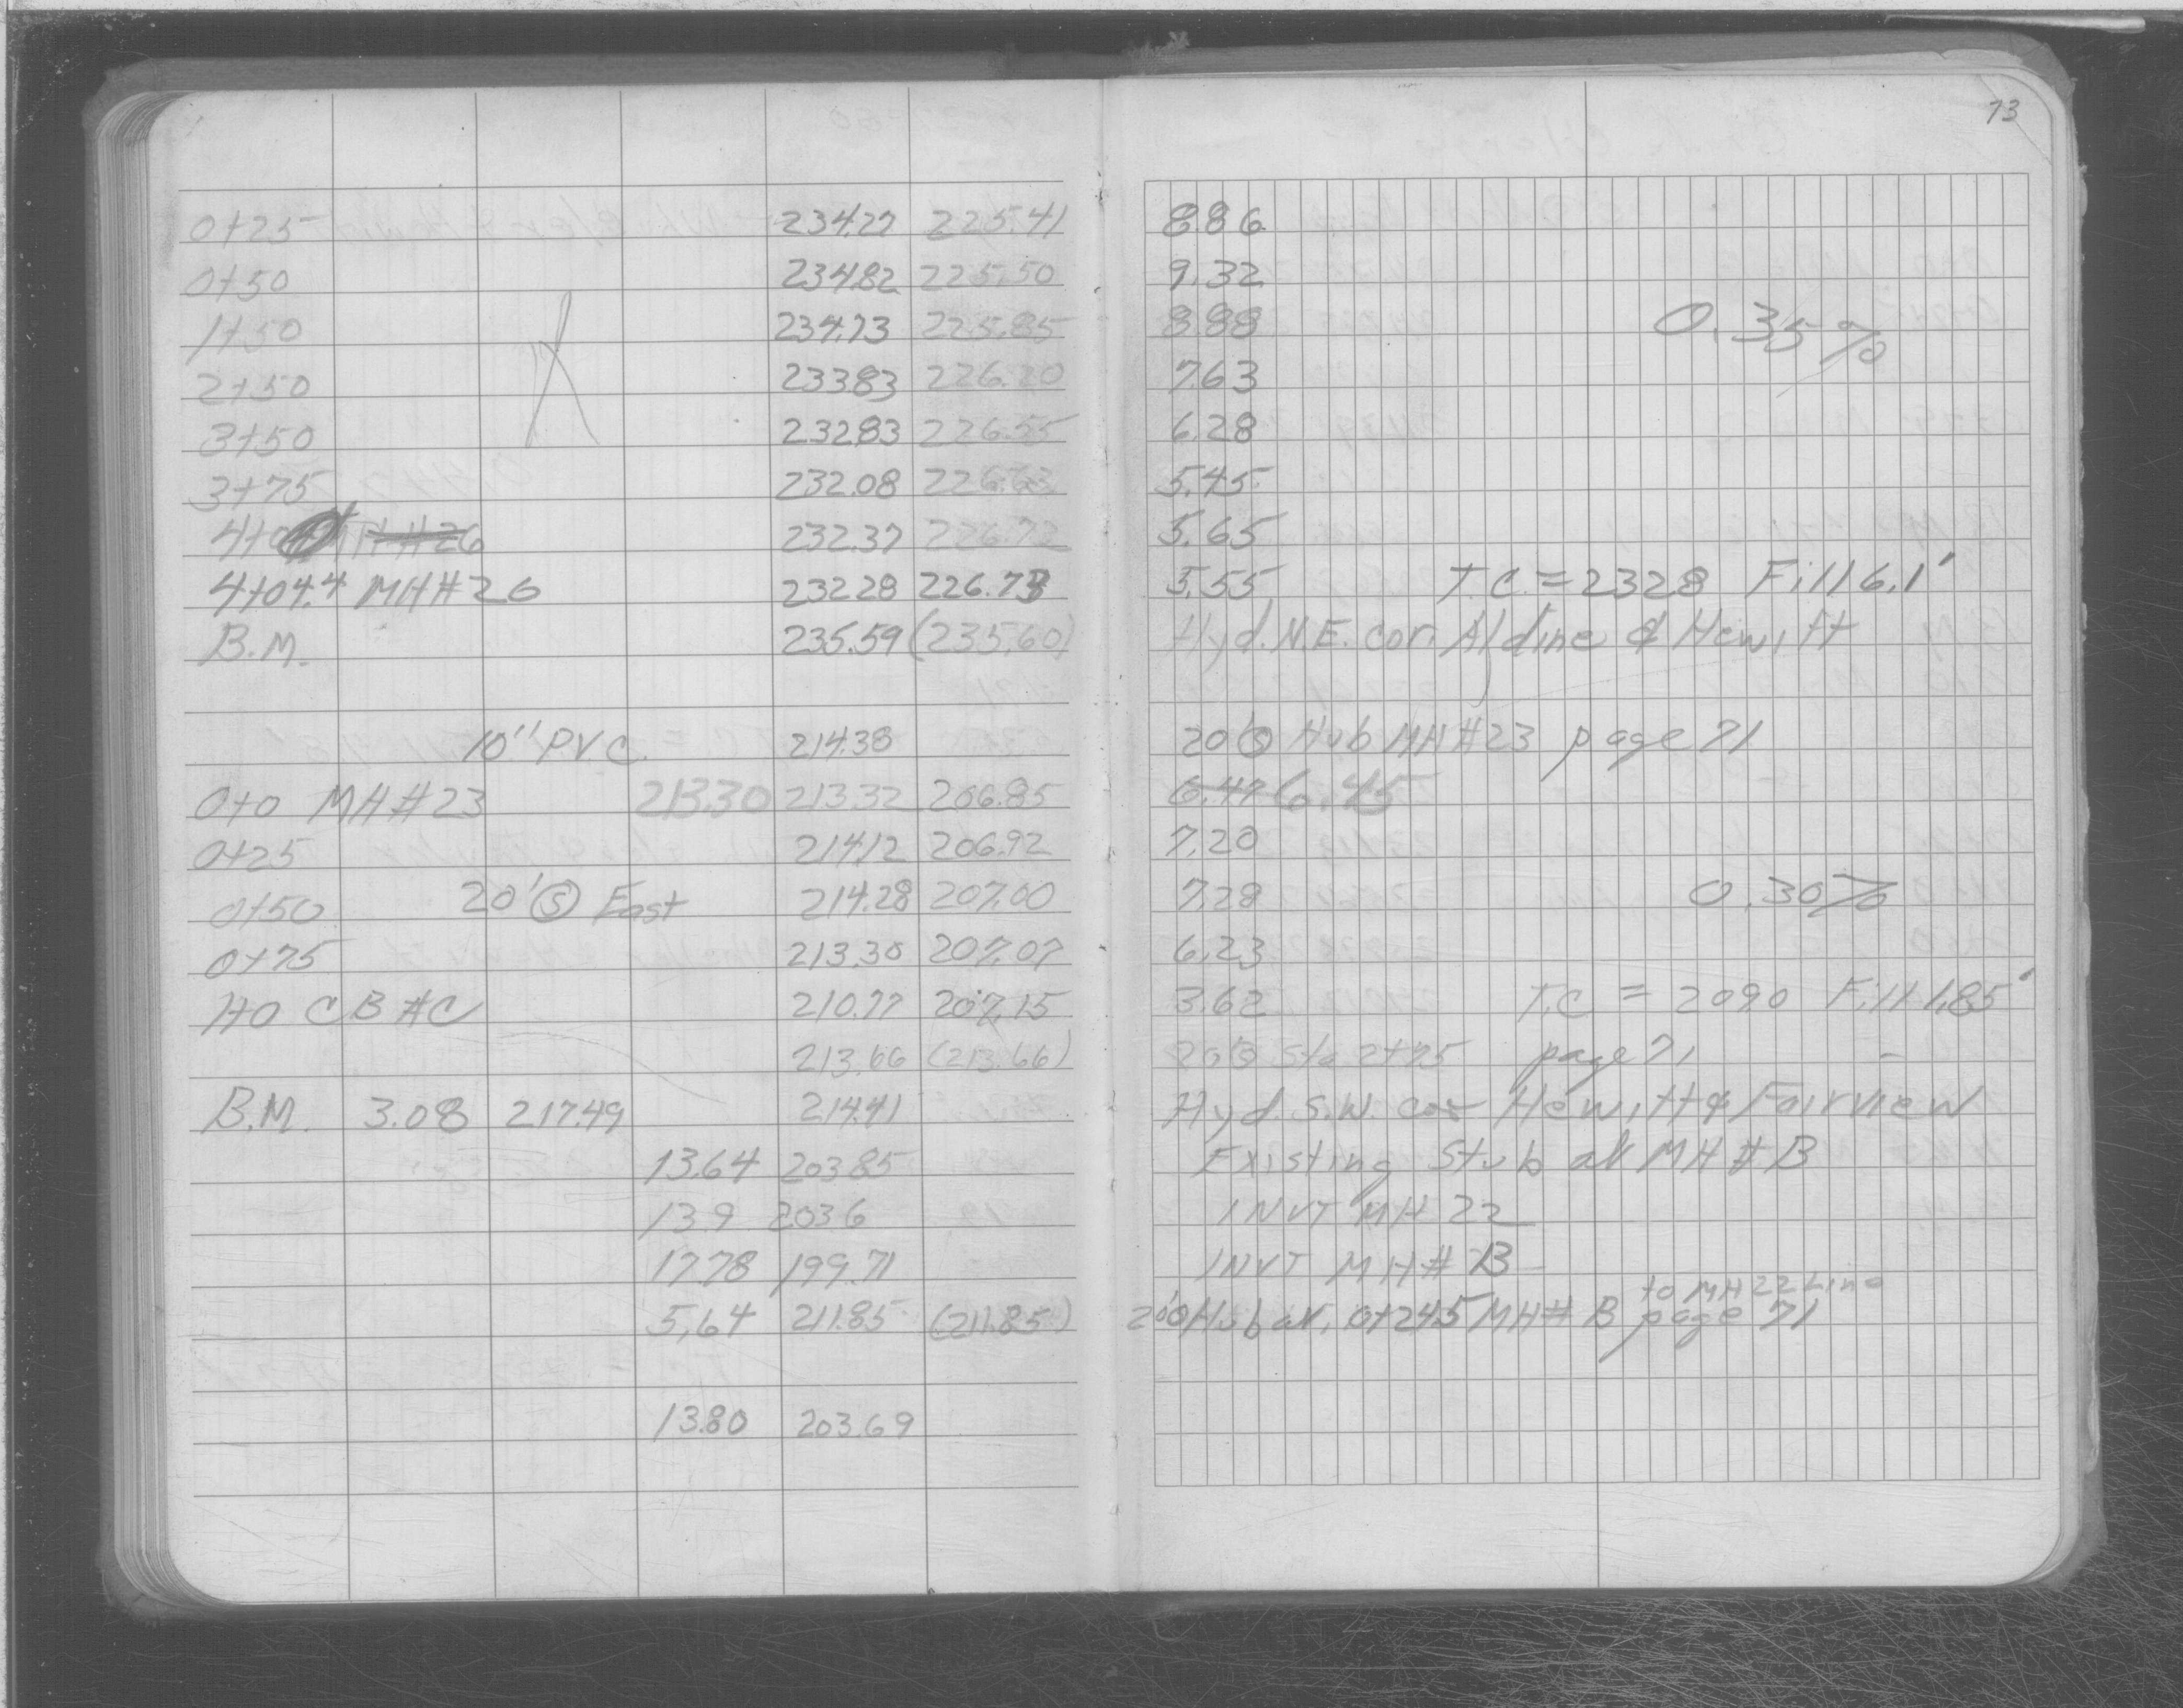 73
0+25 234.27 225.41 8.86
0+50 234.82 225.50 9.32
1+50 234.73 225.85 8.88 0.35%
2+50 233.83 226.20 7.63
3+50 232.83 226.55 6.28
3+75 232.08 226.63 5.45
4+0 MH#26 232.37 226.72 5.65
4+04.4 MH#26 232.28 226.73 5.55 T.C. = 232.8 Fill 6.1'
B.M. 235.59 (235.60) Hyd. N.E. cor. Aldine & Hewitt
10" P.V.C. 214.38 20'Ⓢ Hub MH#23 page 71
0+0 MH#23 213.30 213.32 206.85 6.47 6.45
0+25 214.12 206.92 7.20
0+50 20'Ⓢ East 214.28 207.00 7.28 0.30%
0+75 213.30 207.07 6.23
1+0 CB#C 210.77 207.15 3.62 T.C = 209.0 Fill 1.85'
213.66 (213.66) 20'Ⓢ Sta 2+75 page 71
B.M. 3.08 217.49 214.41 Hyd S.W. cor Hewitt & Fairview
13.64 203.85 Existing Stub at MH#B
13.9 203.6 INVT MH 22
17.78 199.71 INVT MH#B
to MH 22 Line
5.64 211.85 (211.85) 20'0 Hub at 0+24.5 MH#B page 71
13.80 203.69